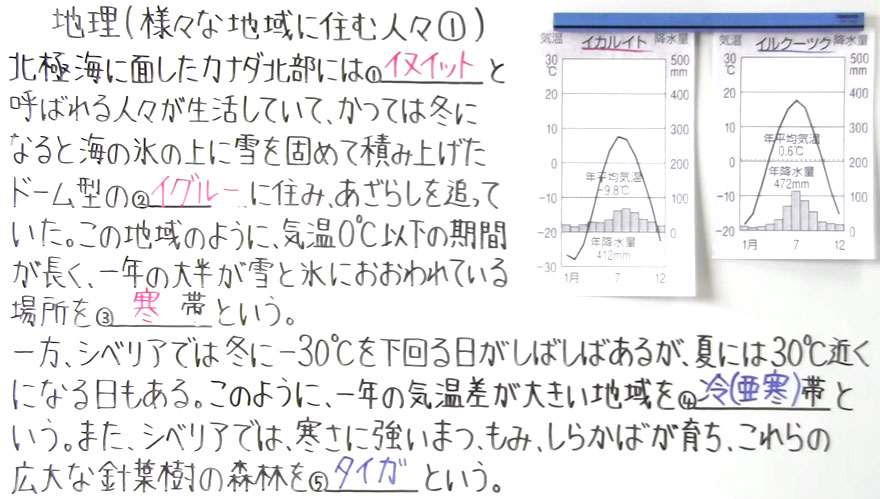 地理(様々な地域に住む人々①)
北極海に面したカナダ北部には①イヌイットと
呼ばれる人々が生活していて、かつては冬に
なると海の氷の上に雪を固めて積み上げた
ドーム型の②イグルーに住み、あざらしを追って
いた。この地域のように、気温0℃以下の期間
が長く、一年の大半が雪と氷におおわれている
場所を③寒帯という。
一方、シベリアでは冬に-30℃を下回る日がしばしばあるが、夏には30℃近く
になる日もある。このように、一年の気温差が大きい地域を④冷(亜寒)帯と
いう。また、シベリアでは、寒さに強いまつ、もみ、しらかばが育ち、これらの
広大な針葉樹の森林を⑤タイガという。
気温 イカルイト 降水量
30 500
℃ mm
20 400
10 300
0 200
年平均気温
-9.8℃
-10 100
-20 0
年降水量
412mm
-30
1月 7 12
気温 イルクーツク 降水量
30 500
℃ mm
20 400
10 300
年平均気温
0.6℃
0 200
年降水量
472mm
-10 100
-20 0
1月 7 12